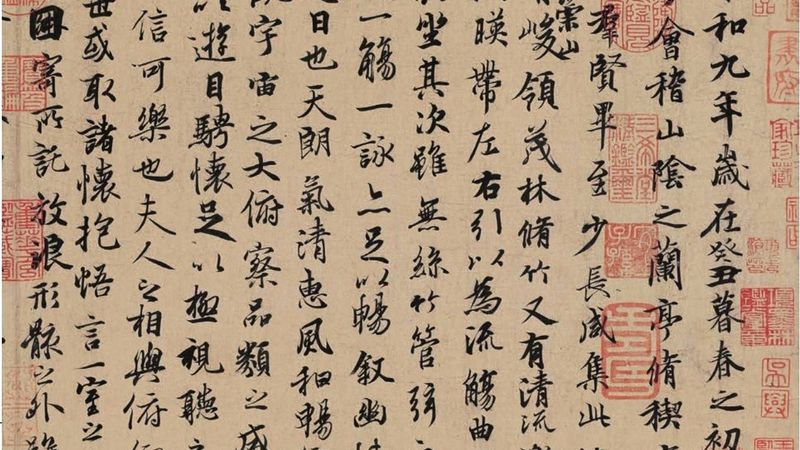 和九年歲在癸丑暮春之初
會稽山陰之蘭亭脩稧
羣賢畢至少長咸集此
崇山
有峻領茂林脩竹又有清流
暎帶左右引以為流觴曲
坐其次雖無絲竹管弦之
一觴一詠亦足以暢叙幽情
日也天朗氣清惠風和暢
宇宙之大俯察品類之盛
以遊目騁懷足以極視聽之
信可樂也夫人之相與俯仰
世或取諸懷抱悟言一室之
因寄所託放浪形骸之外雖